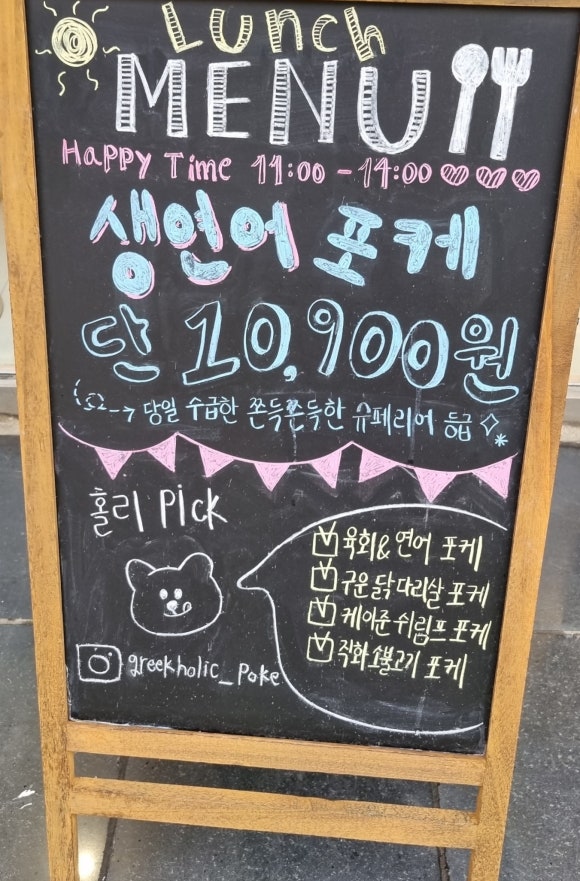 Lunch
MENU
Happy Time 11:00 - 14:00
생연어 포케
단 10,900원
당일 수급한 쫀득쫀득한 슈페리어 등급
홀리 Pick
육회 & 연어 포케
구운 닭다리살 포케
케이준 쉬림프 포케
직화 소불고기 포케
greekholic_poke